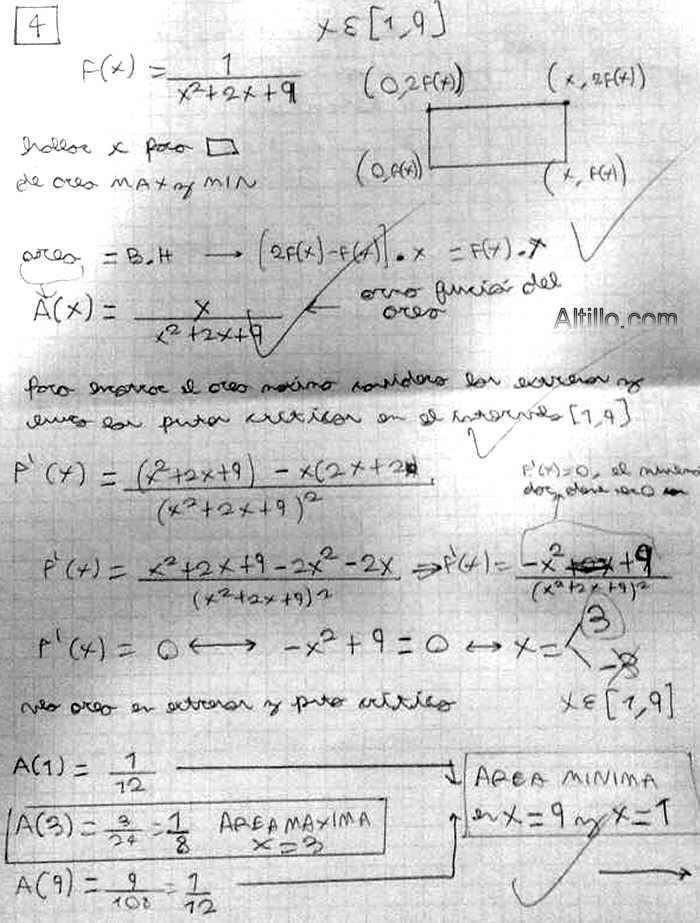 4
x ε [1,9]
F(x) = 1 / (x²+2x+9)
(0,2F(x)) (x,2F(x))
(0,F(x)) (x,F(x))
hallar x para ▭
de area MAX y MIN
area = B.H → [2F(x)-F(x)].x = F(x).x
A(x) = x / (x²+2x+9) ← función del
area
Altillo.com
para encontrar el area maxima considero los extremos y
los puntos criticos en el intervalo [1,9]
F'(x) = ((x²+2x+9) - x(2x+2)) / (x²+2x+9)²
F'(x)=0, el numera
dor debe ser 0
F'(x) = (x²+2x+9-2x²-2x) / (x²+2x+9)² ⇒ F'(x) = (-x²+9) / (x²+2x+9)²
F'(x) = 0 ↔ -x²+9 = 0 ↔ x = 3
-3
veo area en extremos y pto critico x ε [1,9]
A(1) = 1/12
AREA MINIMA
en x=9 y x=1
A(3) = 3/24 = 1/8 AREA MAXIMA
x=3
A(9) = 9/108 = 1/12